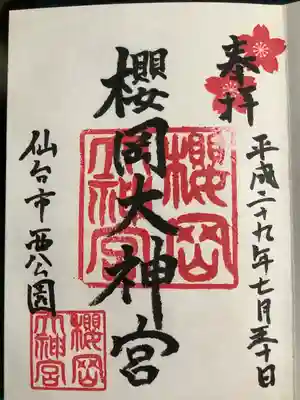 奉拝
平成二十九年七月三十日
櫻岡大神宮
櫻岡大神宮
仙台市西公園
櫻岡大神宮